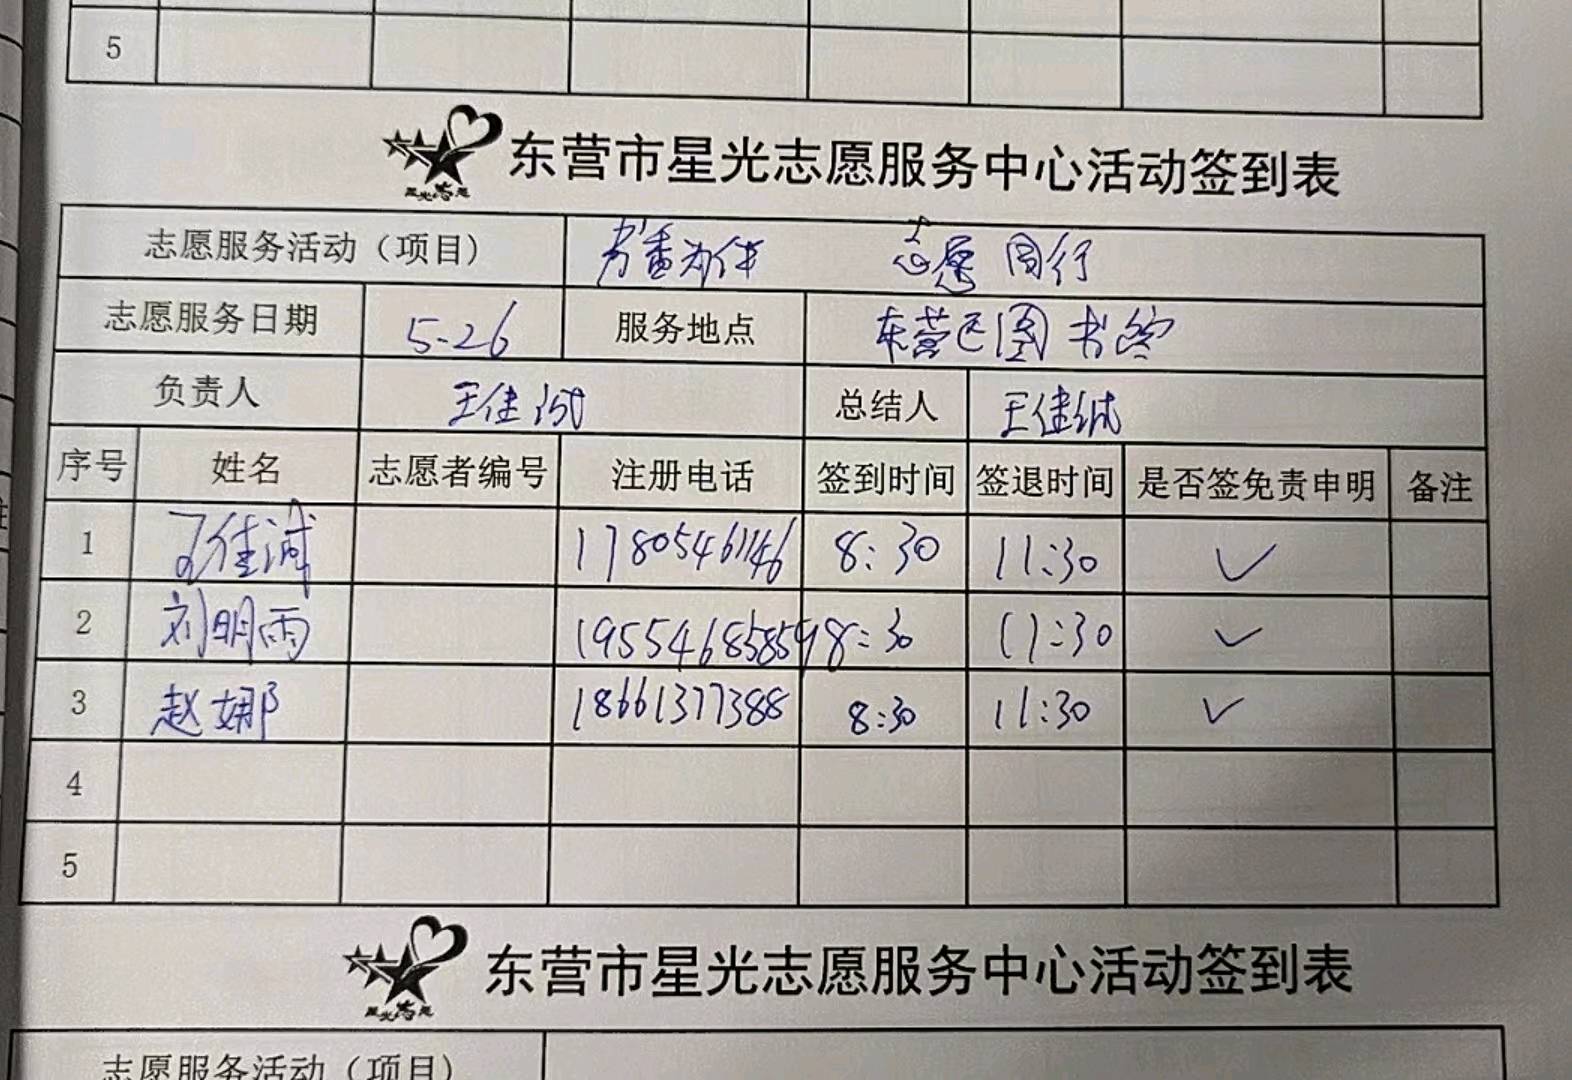 5
东营市星光志愿服务中心活动签到表
星光志愿
志愿服务活动（项目） 书香为伴 志愿同行
志愿服务日期 5.26 服务地点 东营区图书馆
负责人 王佳诚 总结人 王佳诚
序号 姓名 志愿者编号 注册电话 签到时间 签退时间 是否签免责申明 备注
1 王佳诚 17805461146 8:30 11:30 ✓
2 刘明雨 19554685859 8:30 11:30 ✓
3 赵娜 18661377388 8:30 11:30 ✓
4
5
东营市星光志愿服务中心活动签到表
星光志愿
志愿服务活动（项目）